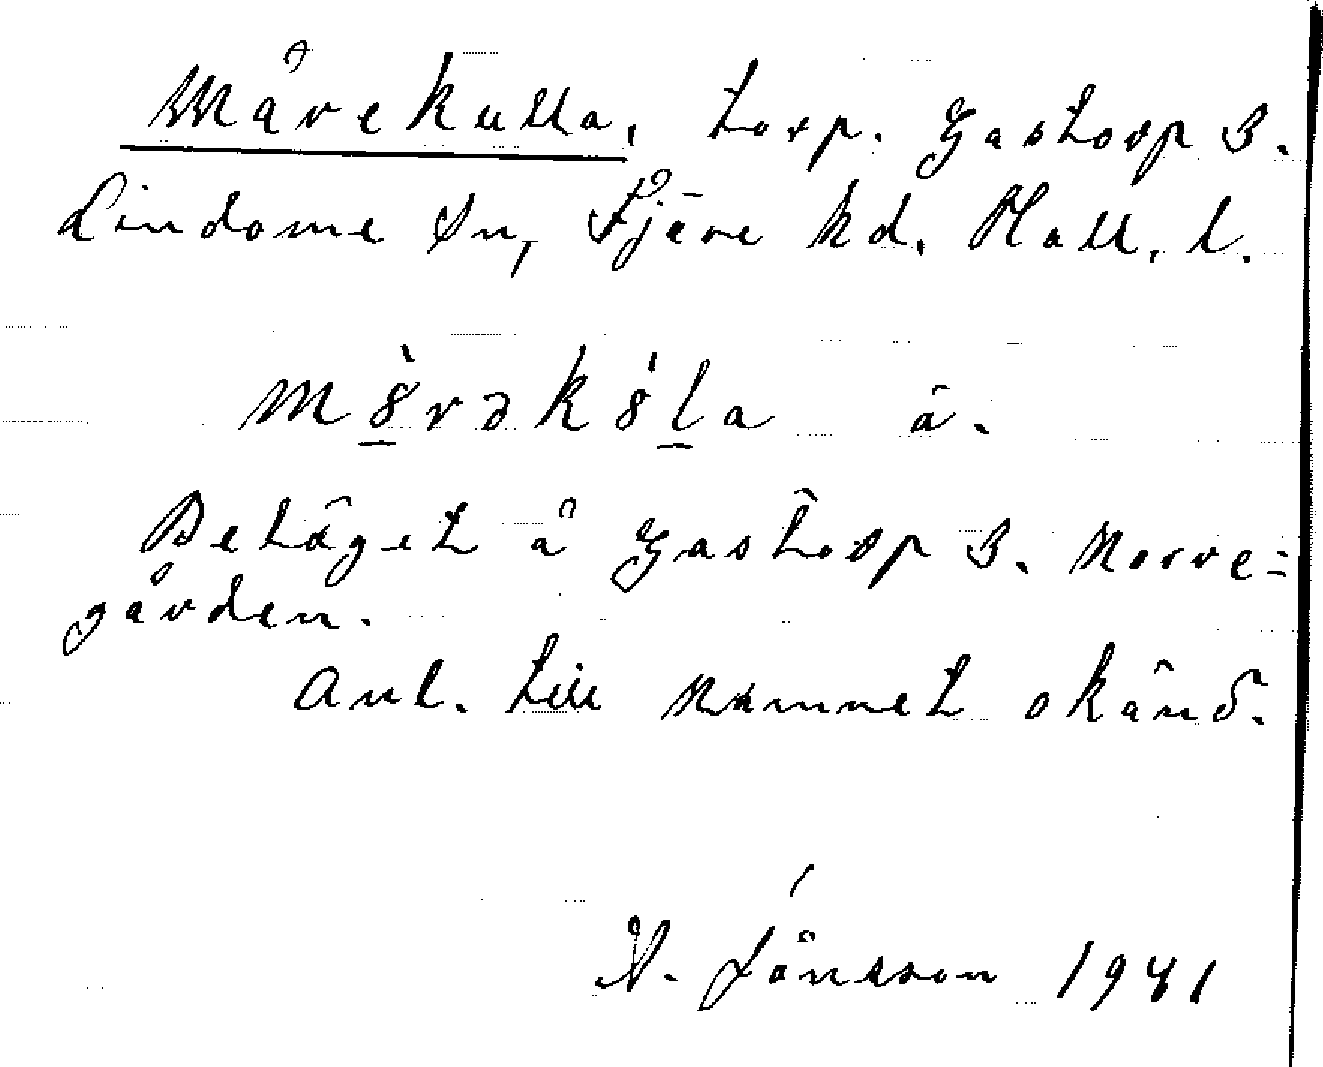 Mårekulla, torp. Gastorp 3.
Lindome Sn, Fjäre hd. Hall. l.
m8̀rək8́la å.
Beläget å Gastorp 3. Norre=
gården.
Anl. till namnet okänd.
N. Jönsson 1941